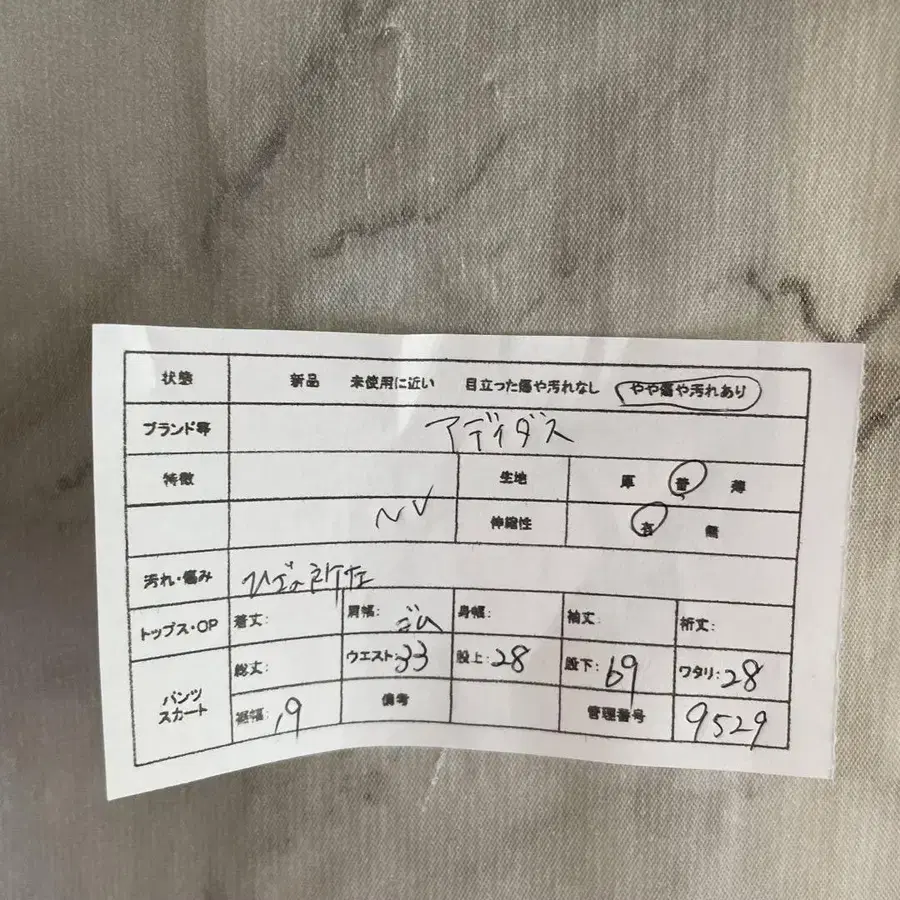 状態 新品 未使用に近い 目立った傷や汚れなし やや傷や汚れあり
ブランド等 アディダス
特徴 生地 厚 普 薄
NV 伸縮性 有 無
汚れ・傷み ひざの
トップス・OP 着丈: 肩幅: 身幅: 袖丈: 裄丈:
パンツ スカート 総丈: ウエスト: ゴム 33 股上: 28 股下: 69 ワタリ: 28
裾幅: 19 備考 管理番号 9529